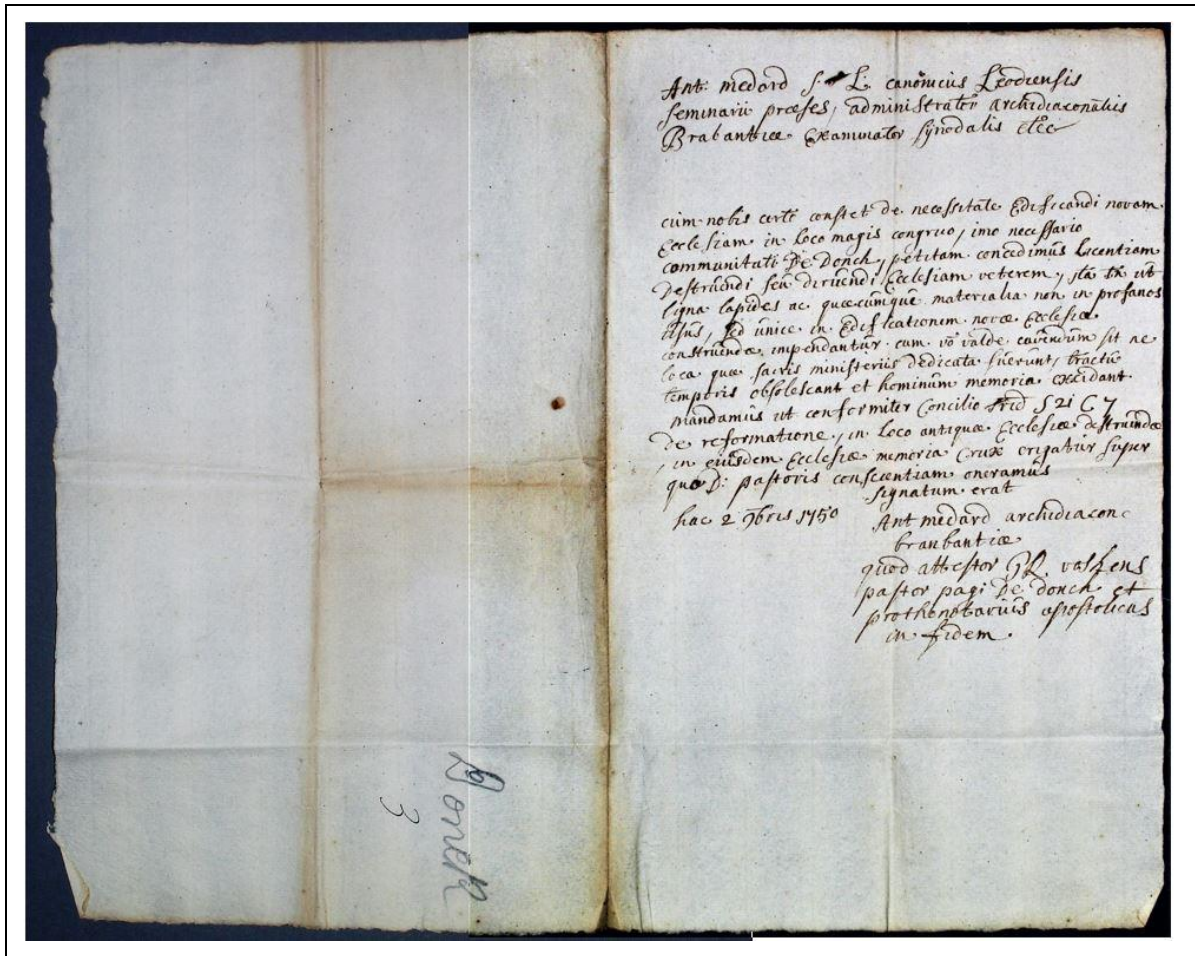 Ant: medard S. L. canonicus Leodiensis
seminarii præses, administrator archidiaconalis
Brabantiæ Examinator synodalis etc
cum nobis certè constet de necessitate Edificandi novam
Ecclesiam in loco magis congruo, imo necessario
communitati De Donck, petitam concedimus Licentiam
Destruendi seu diruendi Ecclesiam veterem, ita tn ut
ligna lapides ac quæcumque materialia non in profanos
usus, sed unice in Edificationem novæ Ecclesiæ
construendæ impendantur. cum vo valde cavendum sit ne
loca quæ sacris ministeriis dedicata fuerunt, tractu
temporis obsolescant et hominum memoria excidant
mandamus ut conformiter Concilio trid S 21 C 7
De reformatione, in loco antiquæ Ecclesiæ destruendæ
, in eiusdem Ecclesiæ memoria Crux erigatur super
quo D: pastoris conscientiam oneramus
signatum erat
hac 2 9bris 1750
Ant medard archidiacon
branbantiæ
quod attestor vaskens
pastor pagi De donck et
prothonotarius apostolicus
in fidem.
Donck
3